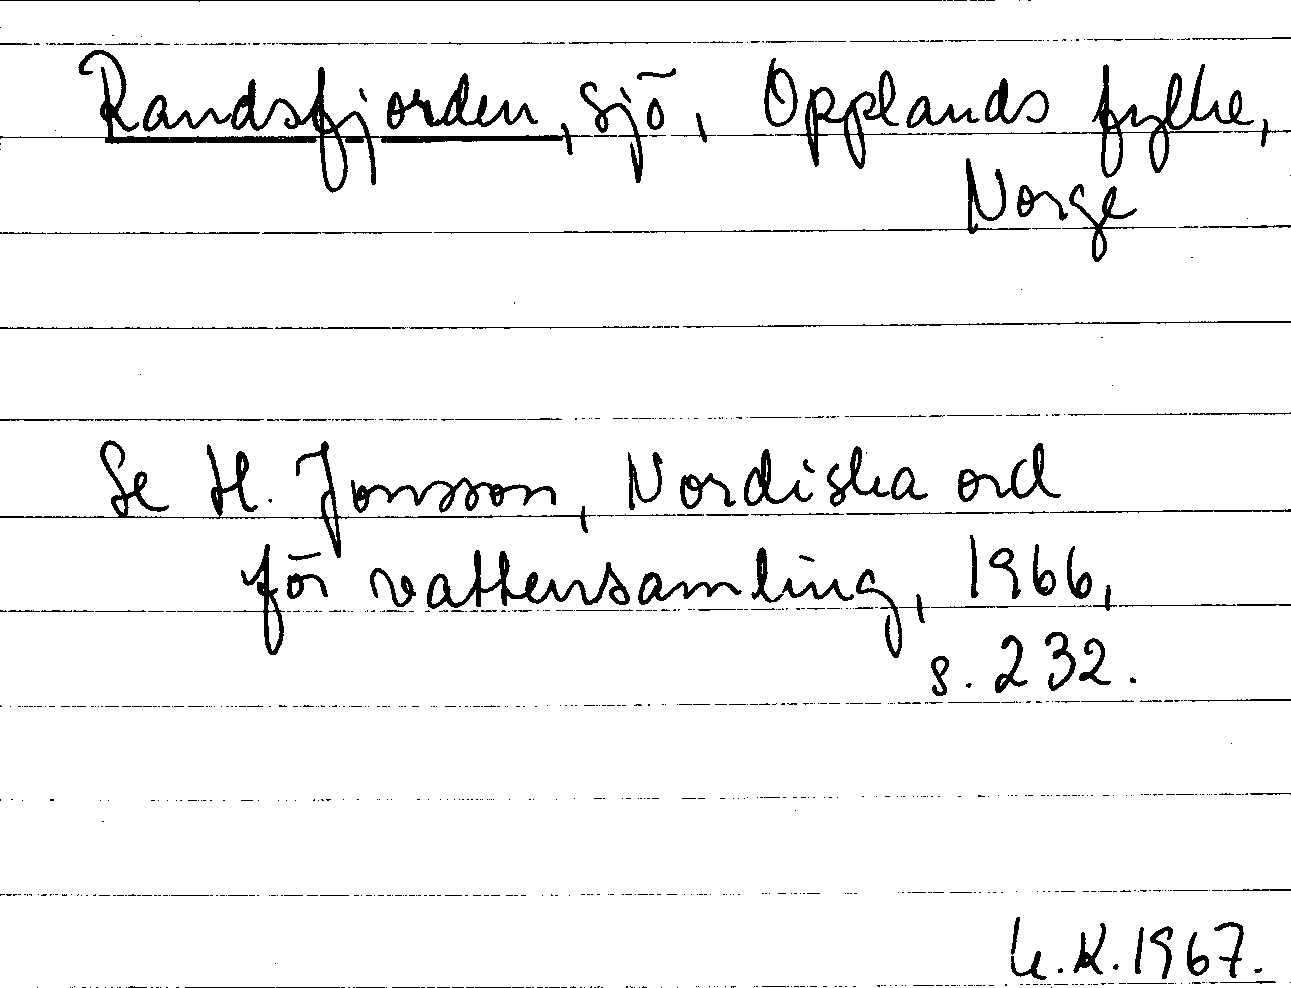 Randsfjorden, sjö, Opplands fylke,
Norge
Se H. Jonsson, Nordiska ord
för vattensamling, 1966,
s. 232.
U.K. 1967.